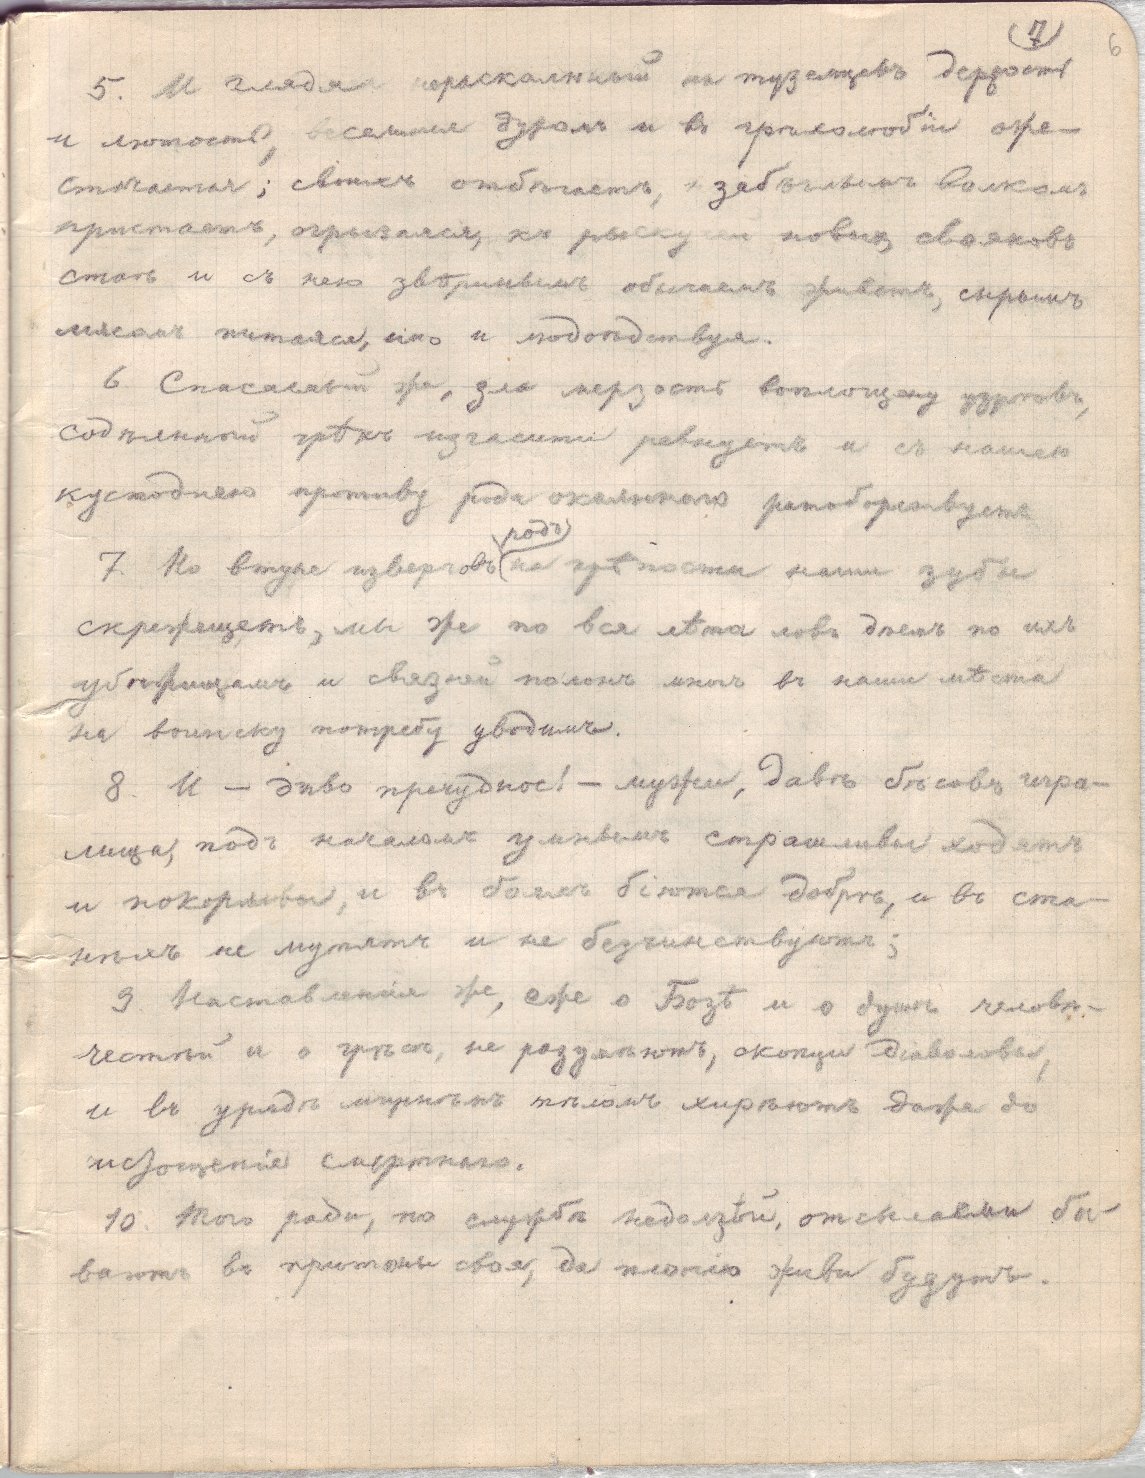 (7) 6
5. И глядя нераскаянный на туземцевъ дерзость
и лютость, веселием дуром и въ грѣхолюбіи оже-
стѣчается; своихъ отбѣгаетъ, забѣглымъ волкомъ
пристаетъ, огрызаяся, къ рыскучей новыхъ свояковъ
стаѣ и съ нею звѣринымъ обычаемъ живетъ, сырымъ
мясомъ питаяся, ино и людоѣдствуя.
6. Спасаемый же, зла мерзость воплощену узрѣвъ,
содѣянный грѣхъ изгласити ревнуетъ и съ нашею
кустодиею противу рода окаяннаго ратоборствуетъ
7. Но втуне изверговъ (родъ) на крѣпости наши зубы
скрежещетъ, мы же по вся лѣта ловъ дѣемъ по ихъ
убѣжищамъ и связней полонъ многъ въ наши мѣста
на воинску потребу уводимъ.
8. И — диво пречудное! — мужи, давѣ бѣсовъ игра-
лища, подъ началомъ умнымъ страшливы ходятъ
и покорливы, и въ бояхъ біются добрѣ, и въ ста-
нѣхъ не мутятъ и не безчинствуютъ;
9. Наставленія же, еже о Бозѣ и о душѣ человѣ-
честѣй и о грѣсѣ, не разумѣютъ, скопцы діаволовы,
и въ урядѣ мирнѣмъ тѣломъ хирѣютъ даже до
истощенія смертнаго.
10. Того ради, по службѣ недолзѣй, отсылаеми бы-
ваютъ въ притоны своя, да плотію живи будутъ.